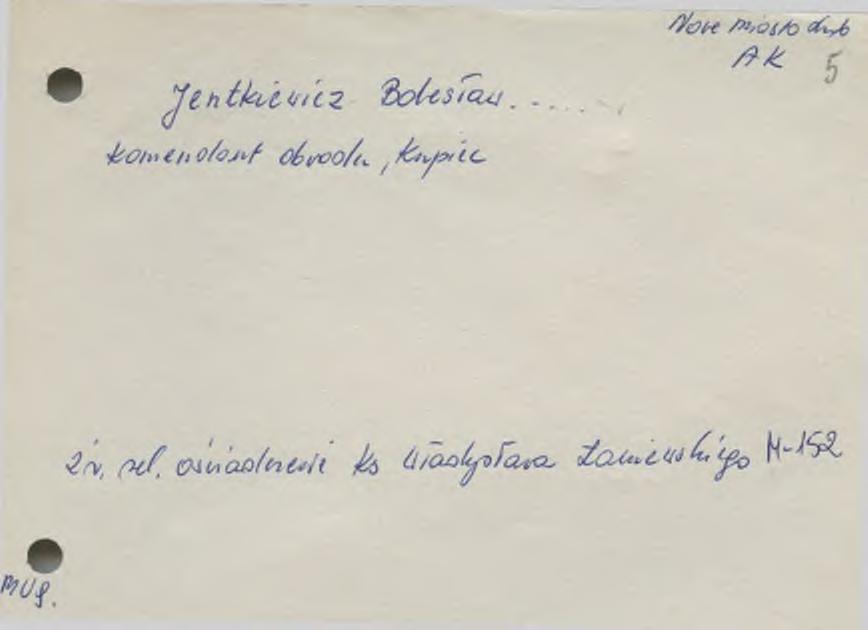 Nowe Miasto Lub
AK 5
Jentkiewicz Bolesław......
komendant obwodu, kupiec
źr. rel. oświadczenie ks Władysława Łaniewskiego M-152